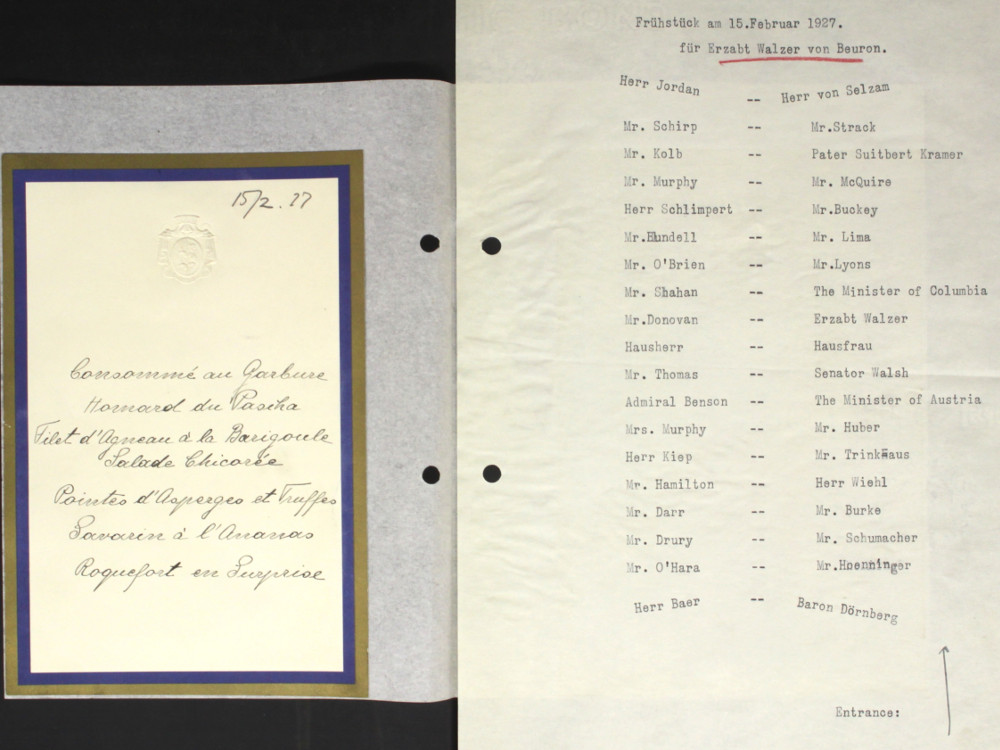 15/2. 27
Consommé au Garbure
Homard du Pascha
Filet d'Agneau à la Barigoule
Salade Chicorée
Pointes d'Asperges et Truffes
Savarin à l'Ananas
Roquefort en Surprise
Frühstück am 15.Februar 1927.
für Erzabt Walzer von Beuron.
Herr Jordan -- Herr von Selzam
Mr. Schirp -- Mr.Strack
Mr. Kolb -- Pater Suitbert Kramer
Mr. Murphy -- Mr. McQuire
Herr Schlimpert -- Mr.Buckey
Mr.Hundell -- Mr. Lima
Mr. O'Brien -- Mr.Lyons
Mr. Shahan -- The Minister of Columbia
Mr.Donovan -- Erzabt Walzer
Hausherr -- Hausfrau
Mr. Thomas -- Senator Walsh
Admiral Benson -- The Minister of Austria
Mrs. Murphy -- Mr. Huber
Herr Kiep -- Mr. Trinkhaus
Mr. Hamilton -- Herr Wiehl
Mr. Darr -- Mr. Burke
Mr. Drury -- Mr. Schumacher
Mr. O'Hara -- Mr.Hoenninger
Herr Baer -- Baron Dörnberg
Entrance: